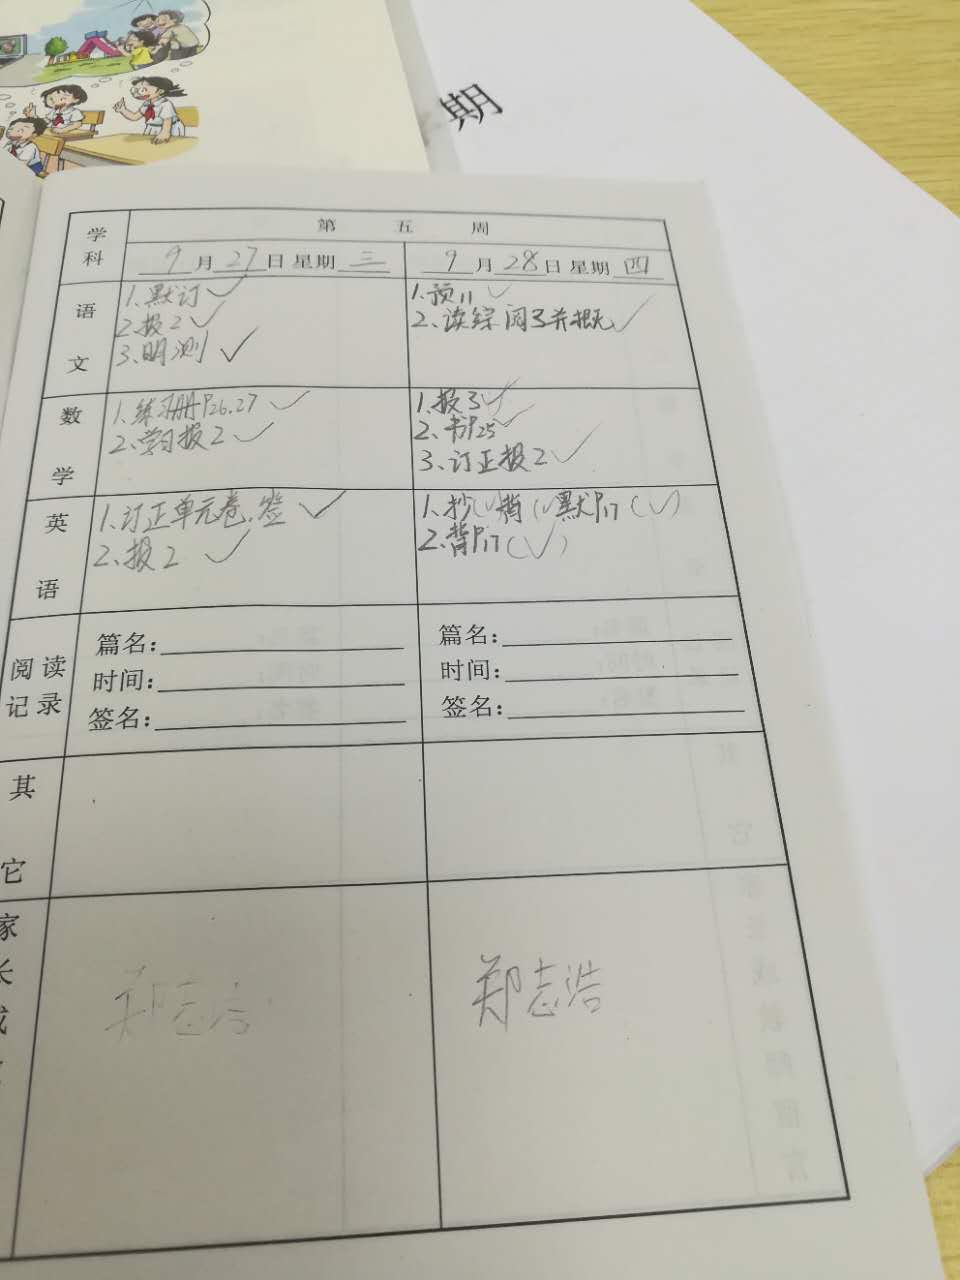 期
学科
第 五 周
9月27日 星期三
9月28日 星期四
语文
1.默订✓
2.报2✓
3.明测✓
1.预11✓
2.读综阅3并概✓
数学
1.练习册P26.27✓
2.学习报2✓
1.报3✓
2.书P25✓
3.订正报2✓
英语
1.订正单元卷.签✓
2.报2✓
1.抄(✓)背(✓)默P17(✓)
2.背P17(✓)
阅读记录
篇名:
时间:
签名:
篇名:
时间:
签名:
其它
家长或
郑志浩
郑志浩